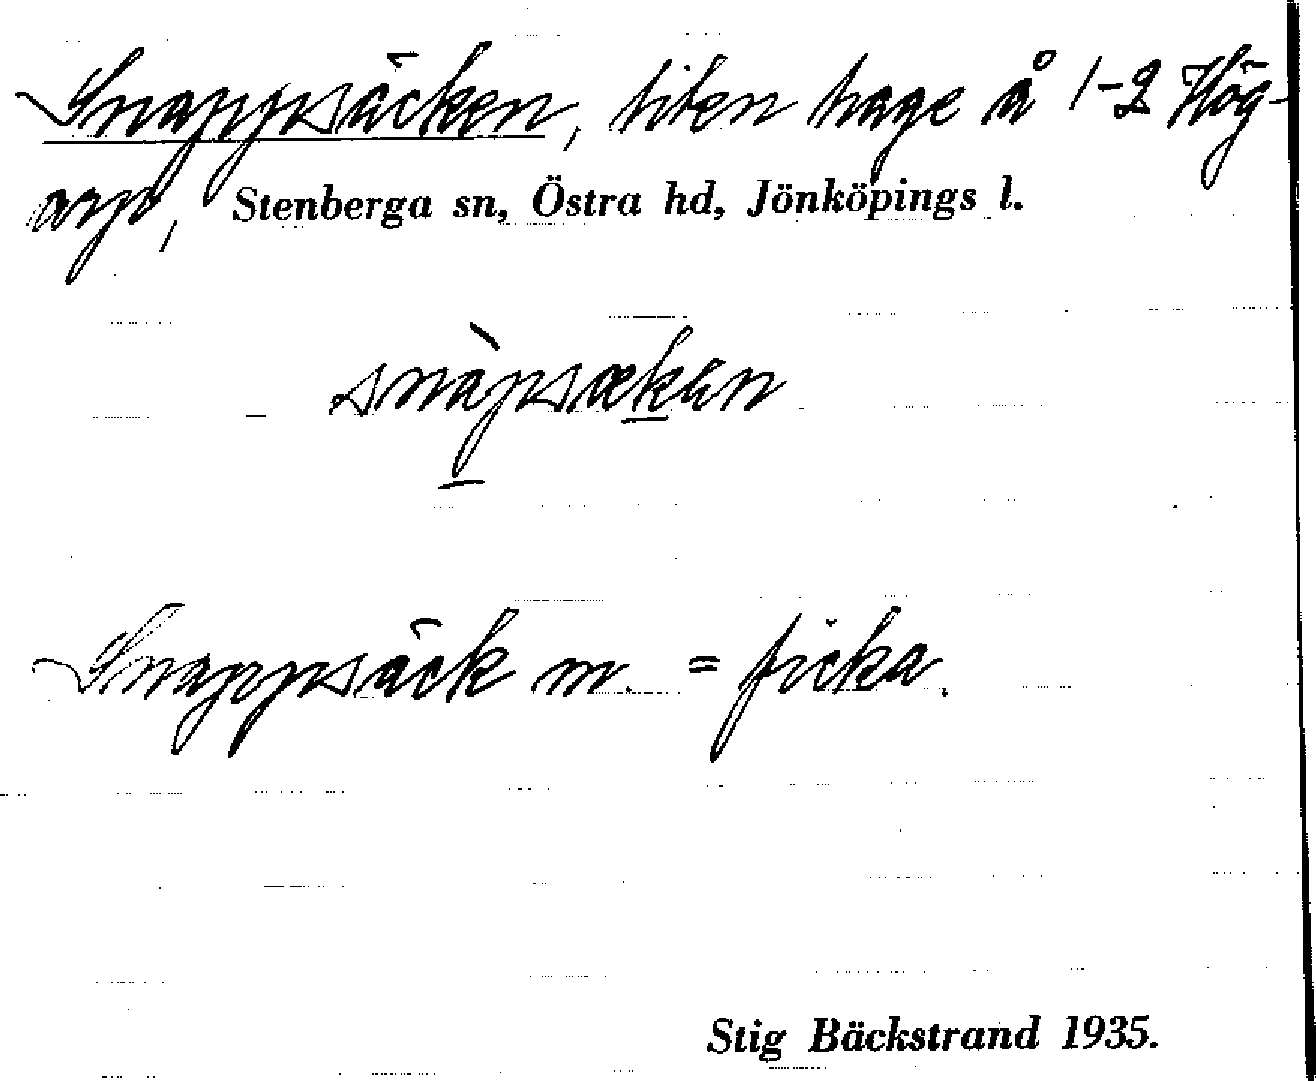 Snappsäcken, liten hage å 1-2 Hög-
arp, Stenberga sn, Östra hd, Jönköpings l.
snàpsækɘn
Snappsäck m. = ficka.
Stig Bäckstrand 1935.